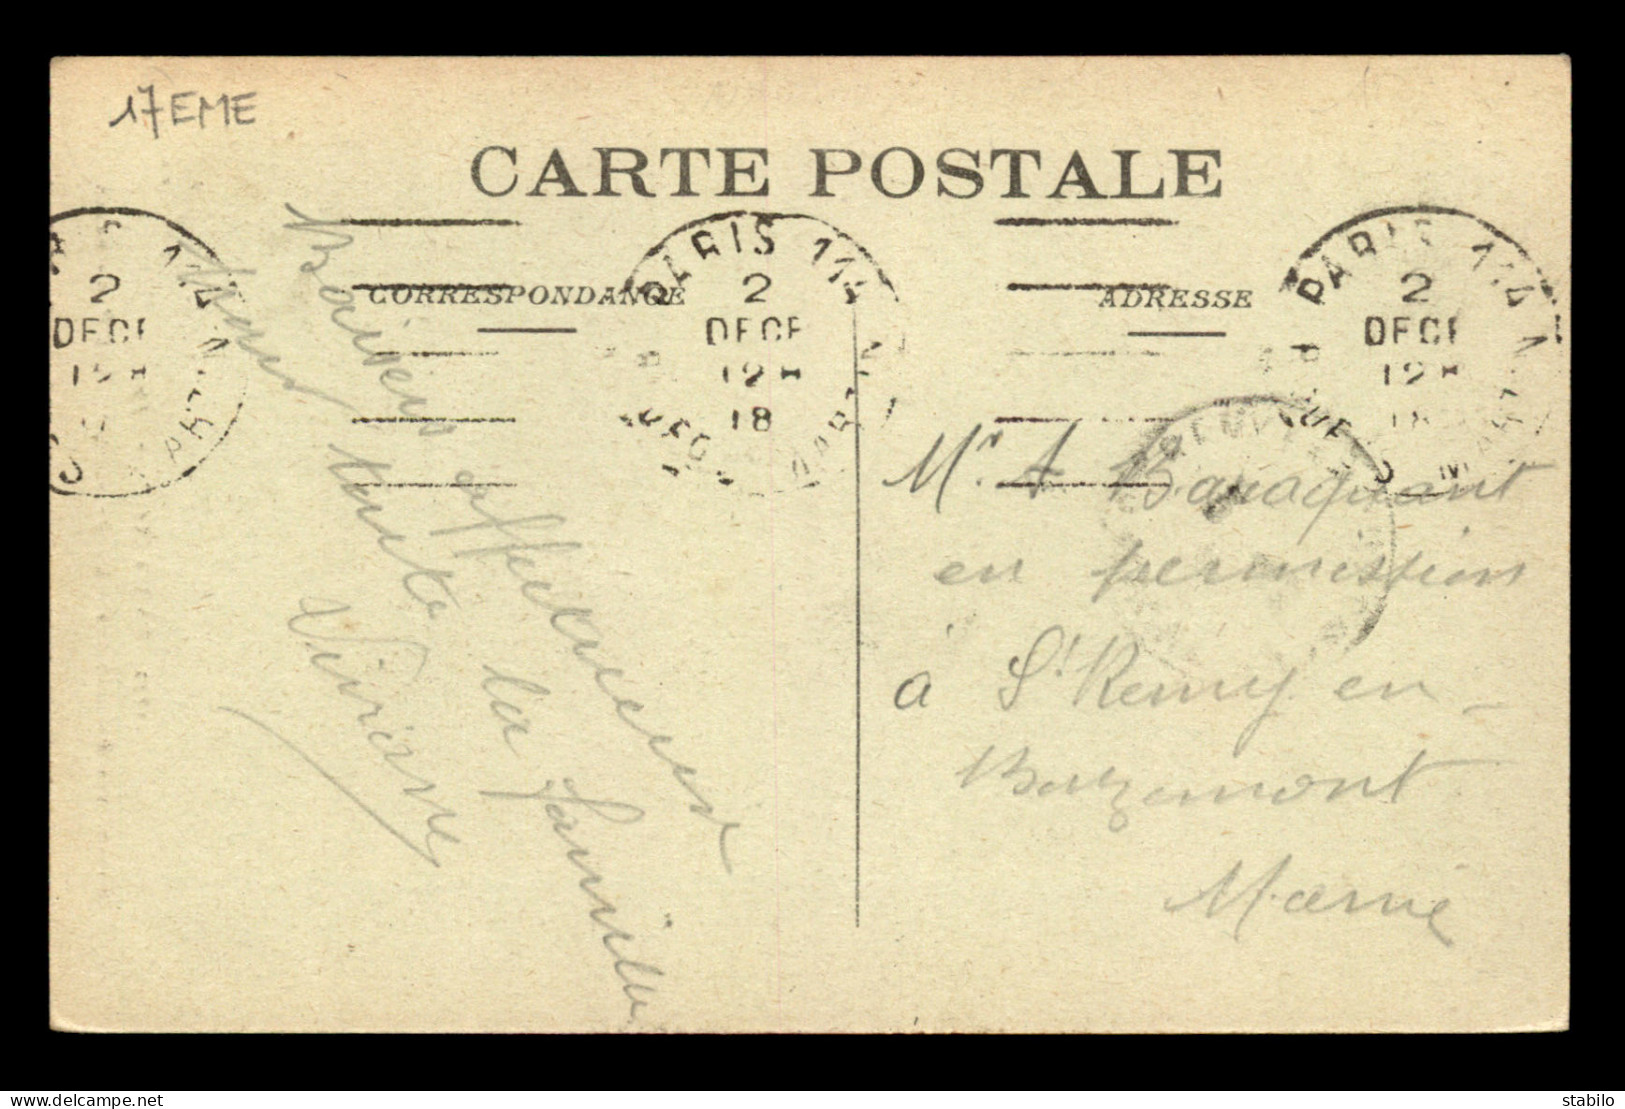 17EME
CARTE POSTALE
CORRESPONDANCE
ADRESSE
PARIS 114
2
DECE
12H
18
PARIS 114
2
DECE
12H
18
2
DECE
Baisers affectueux
pour toute la famille
Viviane
Mr. A Baraquant
en permission
à St Remy en-
Bouzemont
Marne
stabilo